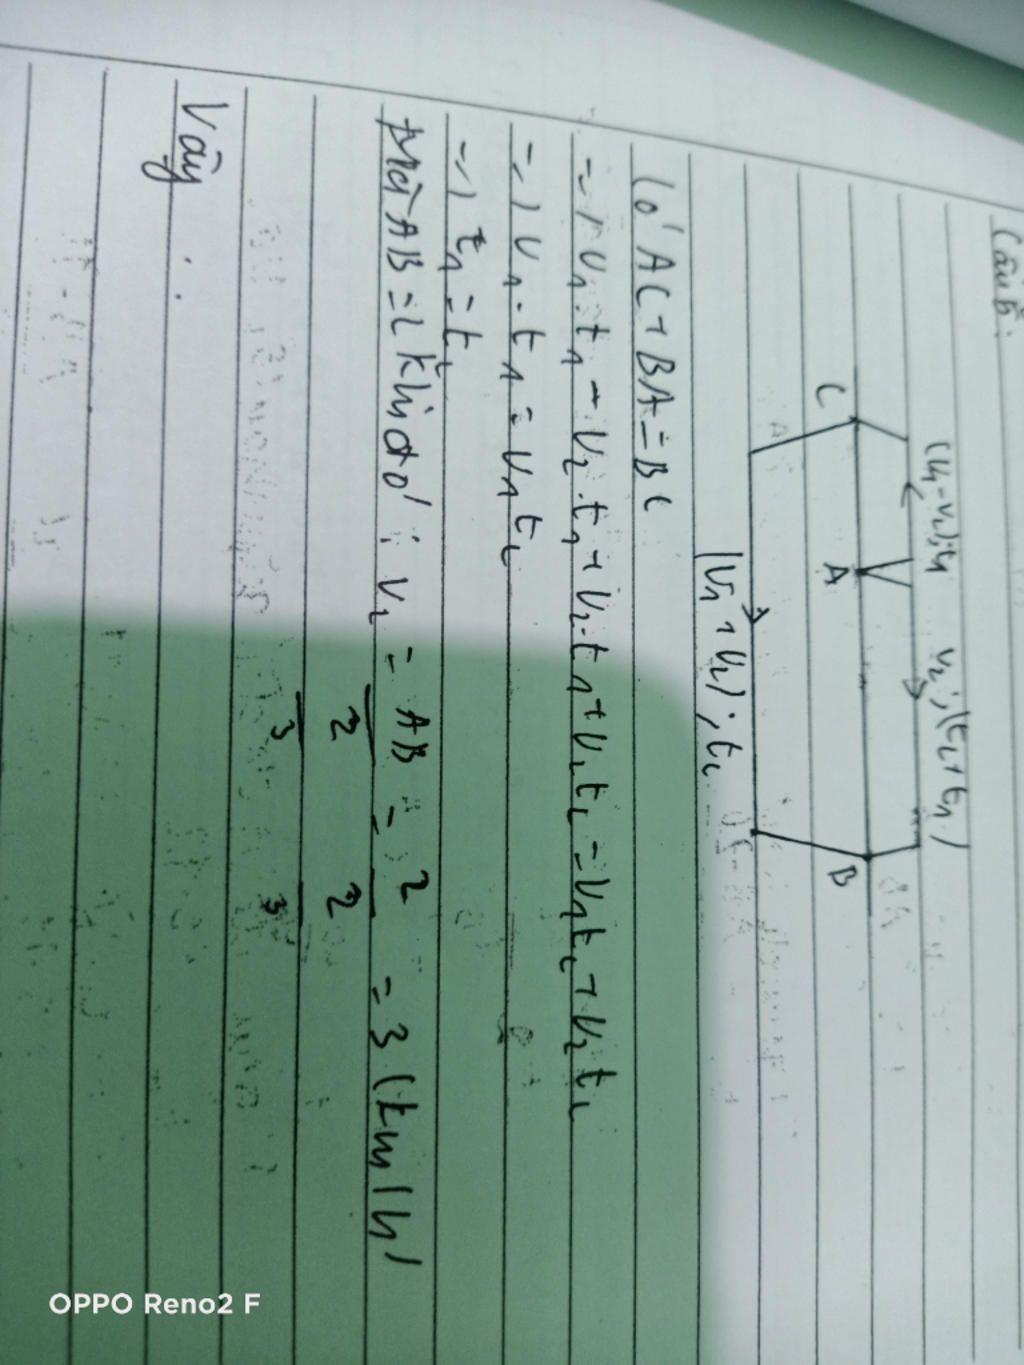 Câu 5:
(v₁-v₂);t₁ v₂;(t₂+t₁)
C A B
(v₁+v₂);t₂
Có AC+BA=BC
=> v₁.t₁ - v₂.t₁ + v₂.t₁ + v₂t₂ = v₁t₂ + v₂t₂
=> v₁.t₁ = v₁t₂
=> t₁ = t₂
Mà AB=2 khi đó : v₂ = AB/(2/3) = 2/(2/3) = 3 (km/h)
Vậy . .
OPPO Reno2 F